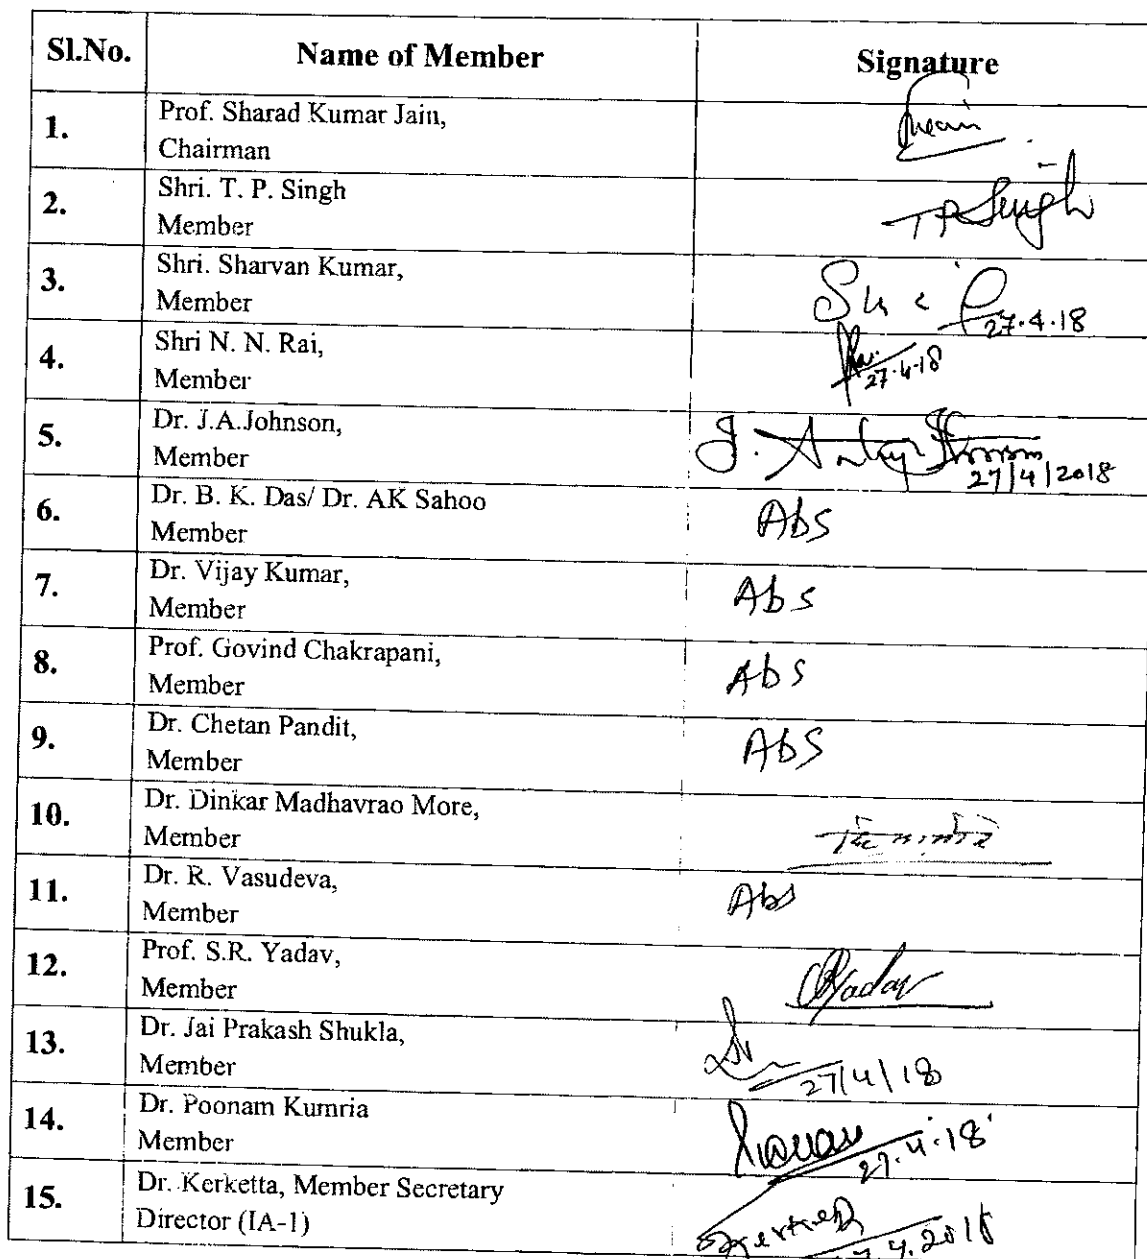 Sl.No. Name of Member Signature
1. Prof. Sharad Kumar Jain,
Chairman
2. Shri. T. P. Singh
Member
T P Singh
3. Shri. Sharvan Kumar,
Member
27.4.18
4. Shri N. N. Rai,
Member
27.4.18
5. Dr. J.A.Johnson,
Member
J.
27/4/2018
6. Dr. B. K. Das/ Dr. AK Sahoo
Member
Abs
7. Dr. Vijay Kumar,
Member
Abs
8. Prof. Govind Chakrapani,
Member
Abs
9. Dr. Chetan Pandit,
Member
Abs
10. Dr. Dinkar Madhavrao More,
Member
11. Dr. R. Vasudeva,
Member
Abs
12. Prof. S.R. Yadav,
Member
Yadav
13. Dr. Jai Prakash Shukla,
Member
27/4/18
14. Dr. Poonam Kumria
Member
27.4.18
15. Dr. Kerketta, Member Secretary
Director (IA-1)